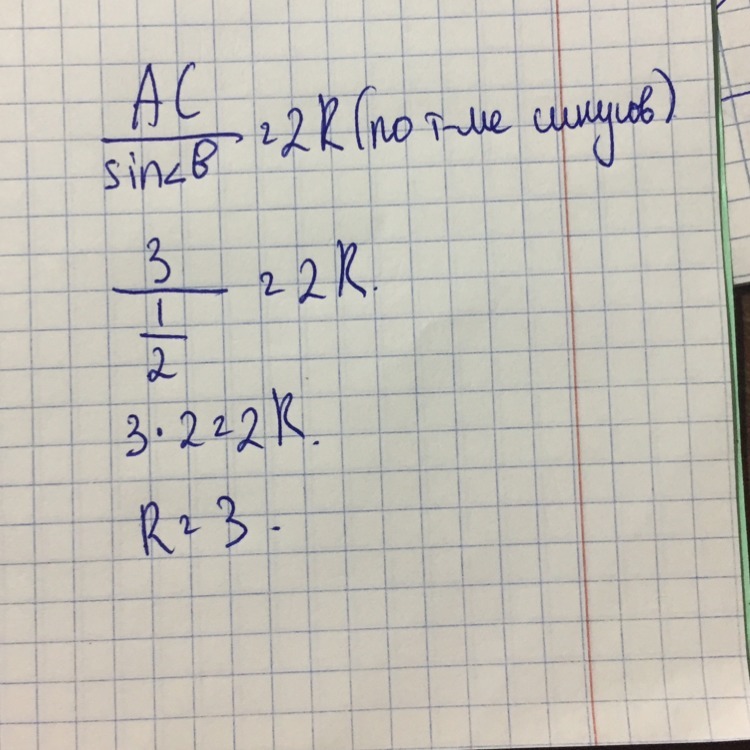 AC/sin∠B = 2R (по т-ме синусов)
3/(1/2) = 2R.
3·2=2R.
R=3.